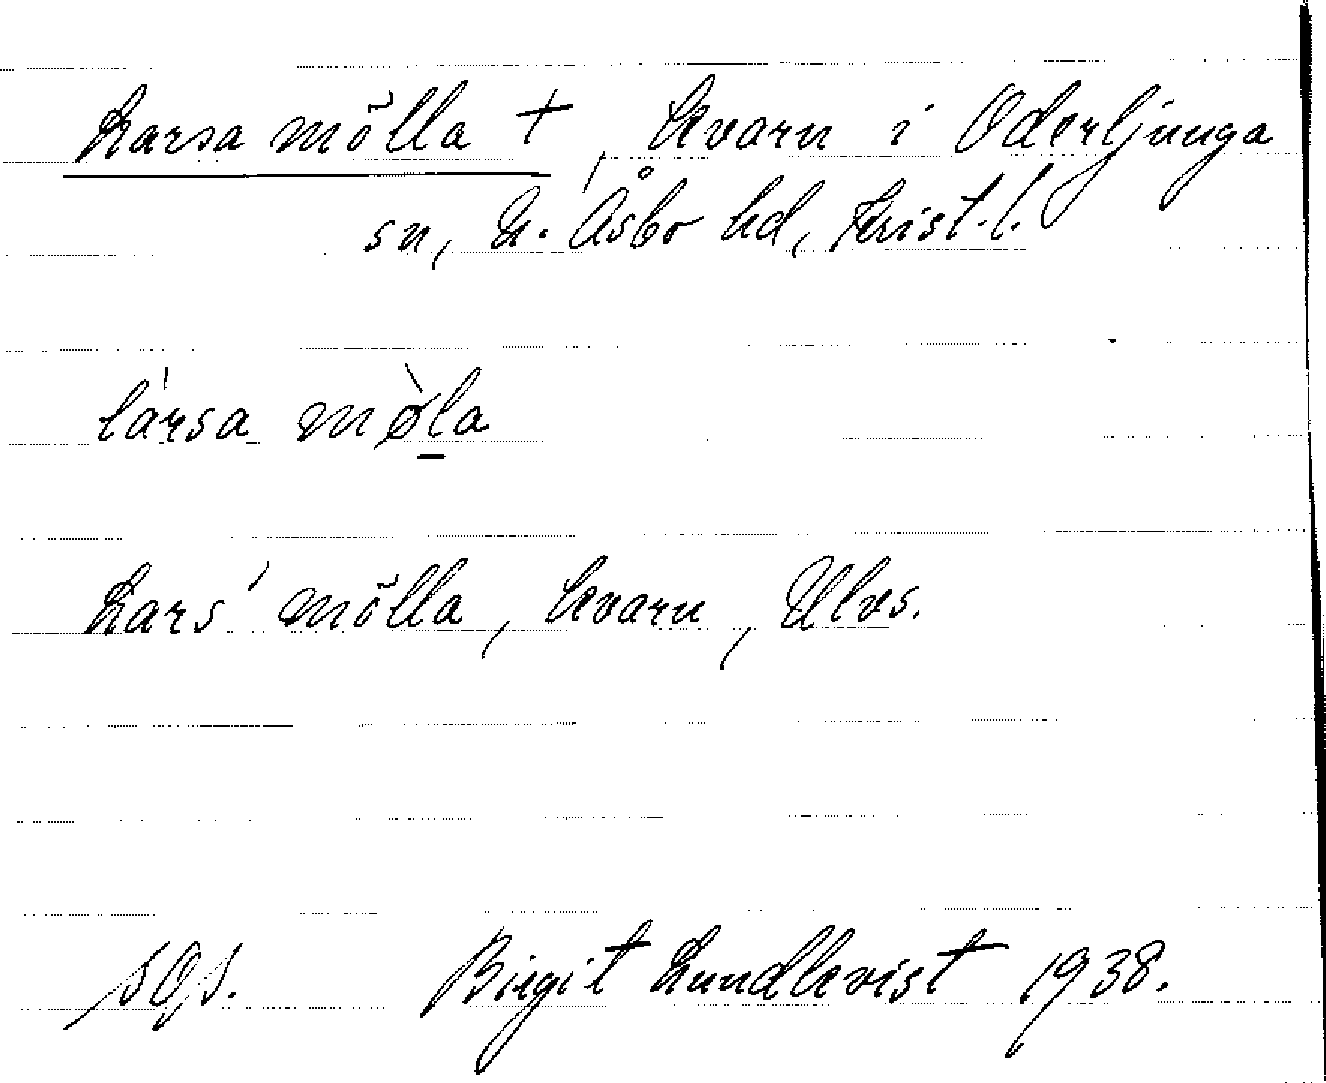 Larsa mölla †, kvarn i Oderljunga
sn, N. Åsbo hd, Krist. l.
lársa mø̀la
Lars' mölla, kvarn, Ulvs.
SOJ.
Birgit Lundkvist 1938.